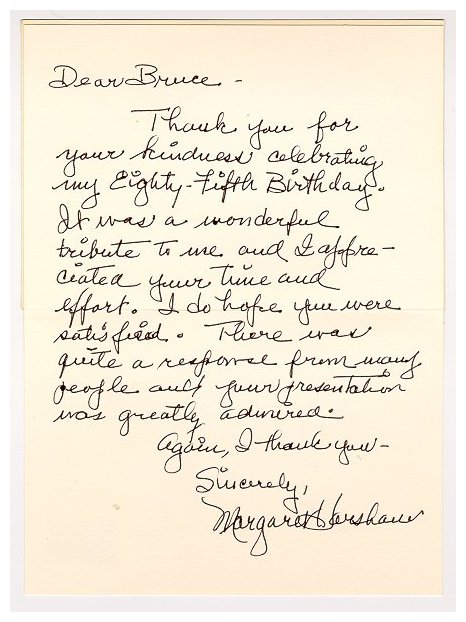 Dear Bruce -
Thank you for
your kindness celebrating
my Eighty-Fifth Birthday.
It was a wonderful
tribute to me and I appre-
ciated your time and
effort. I do hope you were
satisfied. There was
quite a response from many
people and your presentation
was greatly admired.
Again, I thank you -
Sincerely,
Margaret